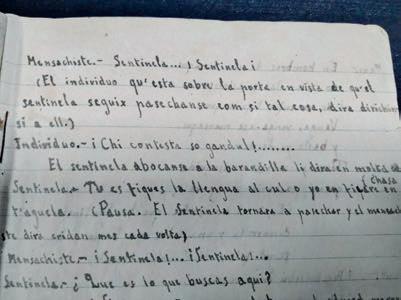 Mensachiste.- Sentinela...¡ Sentinela¡
(El individuo qu'esta sobre la porta en vista de qu'el
sentinela seguix pasechanse com si tal cosa, dira dirichin
si a ell.)
Individuo.- ¡Chi contesta so gandul!........
El sentinela abocanse a la barandilla li dira en molta
chasa
Sentinela.- Tu es fiques la llengua al cul o yo en ficare en
t'aguela. (Pausa. El Sentinela tornara a pasechar y el mensach
ste dira cridan mes cada volta)
Mensachiste.- ¡Sentinela!... ¡Sentinela!...
Sentinela.- ¿Que es lo que buscas aqui?